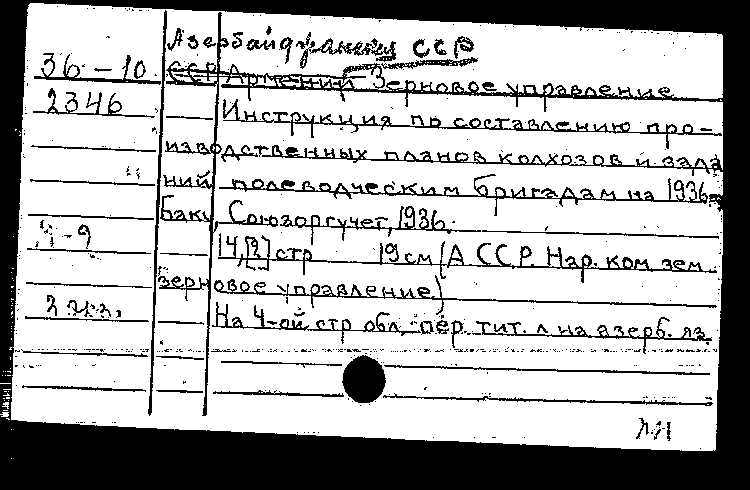 Азербайджанская ССР
36-10 ССР Армении Зерновое управление
2346 Инструкция по составлению про-
изводственных планов колхозов и зада
ний полеводческим бригадам на 1936г.
Баку, Союзоргучет, 1936.
14,[2] стр 19 см (А ССР. Нар. ком. зем.
зерновое управление)
2 экз.
На 4-ой стр обл, пер. тит. л на азерб. яз.